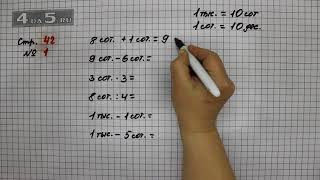 4 da 5.ru
Стр. 42
№ 1
1 тыс. = 10 сот
1 сот. = 10 дес.
8 сот. + 1 сот. = 9
9 сот. - 6 сот. =
3 сот. · 3 =
8 сот. : 4 =
1 тыс. - 1 сот. =
1 тыс. - 5 сот. =